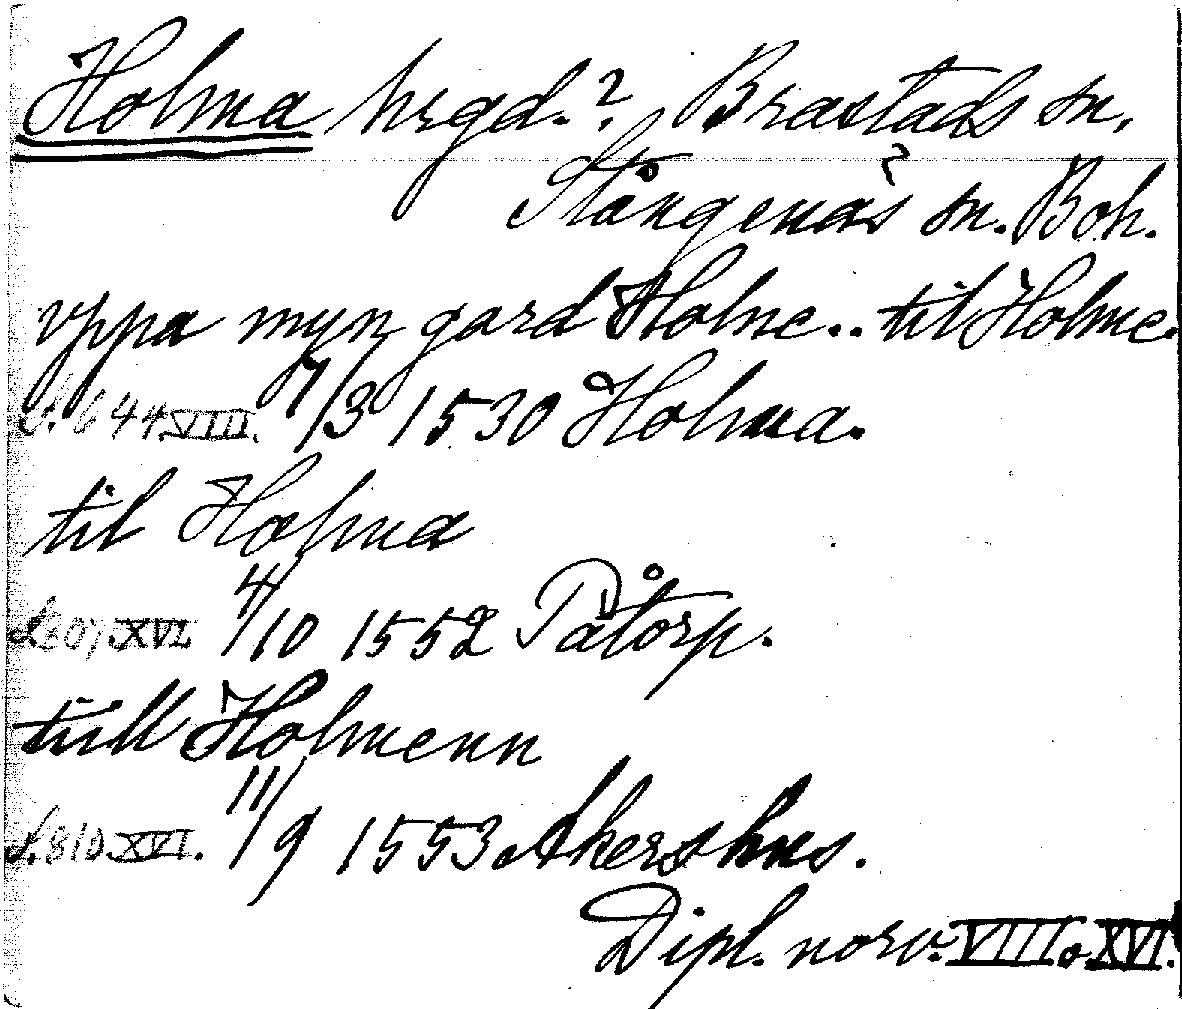 Holma hrgd.? Brastads sn,
Stångenäs? sn. Boh.
vppa myn gard Holne.. til Holme.
S. 644. VIII. 7/3 1530 Holma.
til Holma
S. 807. XVI. 4/10 1552 Påtorp.
till Holmenn
S. 810. XVI. 11/9 1553 Akershus.
Dipl. norv. VIII o. XVI.